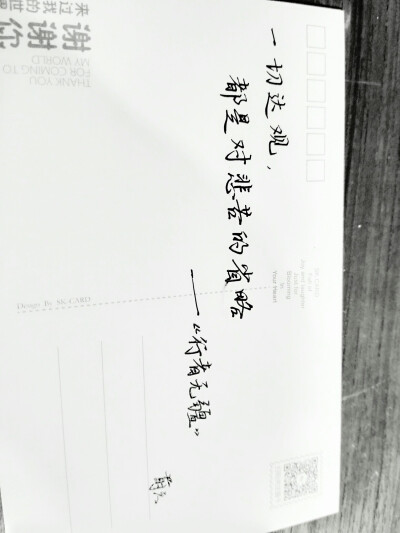 一切达观，
都是对悲苦的省略
——《行者无疆》
谢谢你
来过我的世界
THANK YOU
FOR COMING TO
MY WORLD
Design By SK-CARD
Your Heart